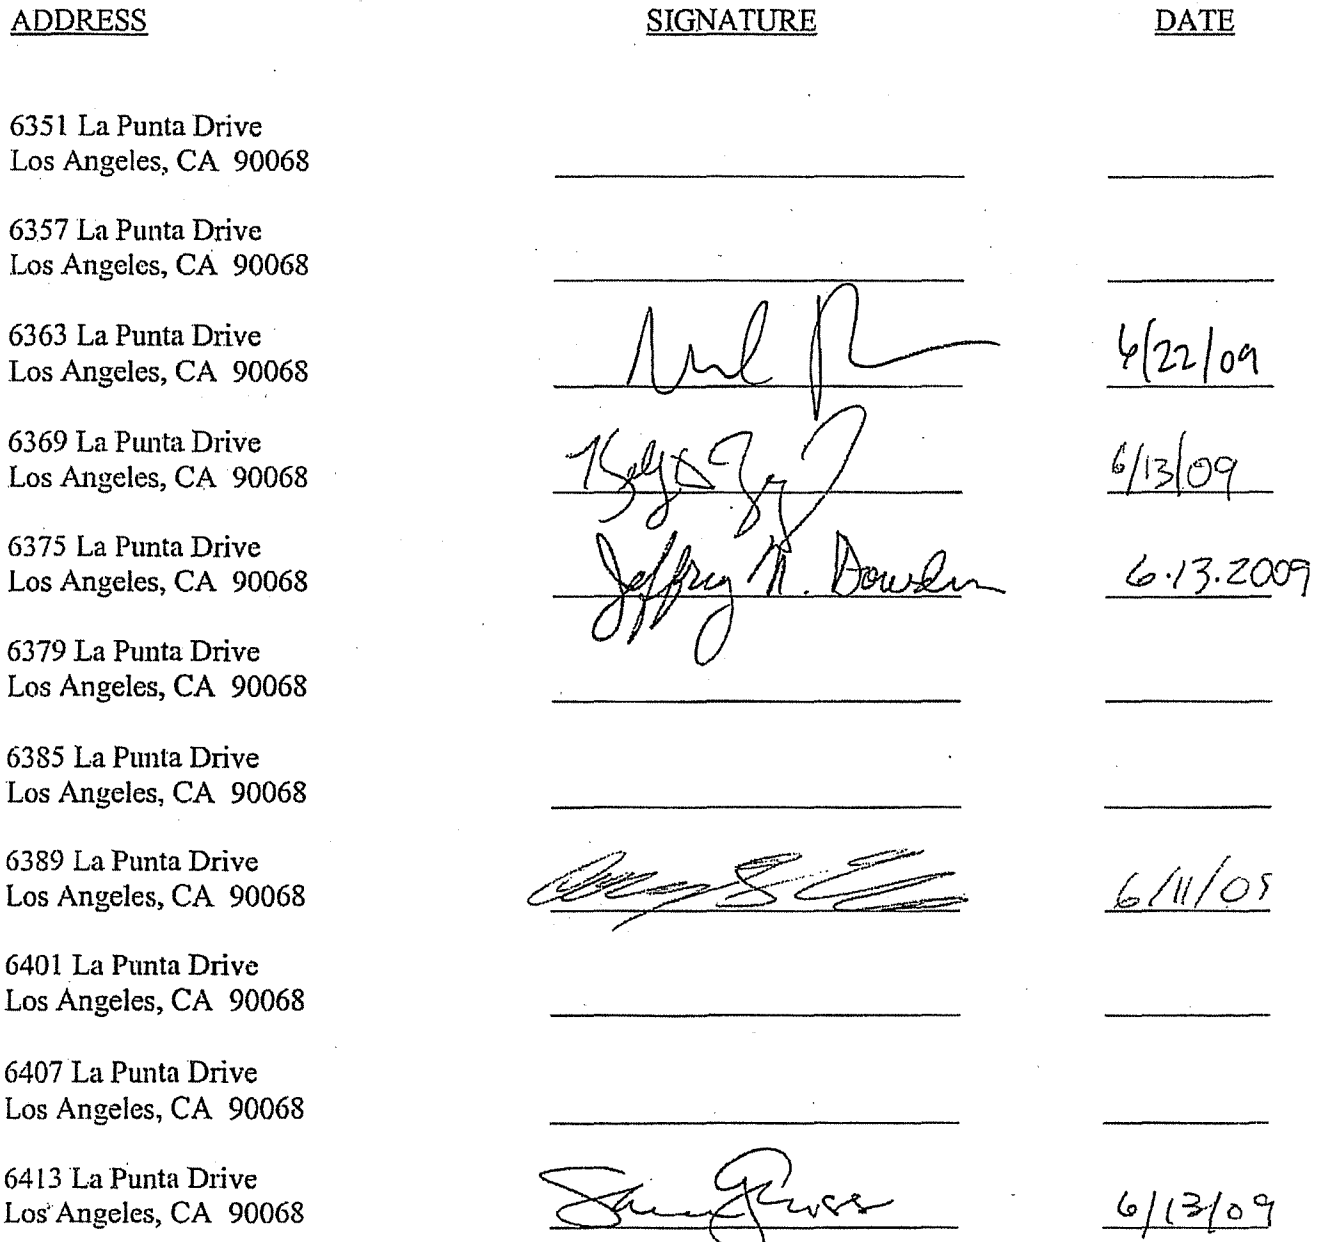 ADDRESS SIGNATURE DATE
6351 La Punta Drive
Los Angeles, CA 90068
6357 La Punta Drive
Los Angeles, CA 90068
6363 La Punta Drive
Los Angeles, CA 90068 6/22/09
6369 La Punta Drive
Los Angeles, CA 90068 6/13/09
6375 La Punta Drive
Los Angeles, CA 90068 Jeffrey N. Bowden 6.13.2009
6379 La Punta Drive
Los Angeles, CA 90068
6385 La Punta Drive
Los Angeles, CA 90068
6389 La Punta Drive
Los Angeles, CA 90068 6/11/09
6401 La Punta Drive
Los Angeles, CA 90068
6407 La Punta Drive
Los Angeles, CA 90068
6413 La Punta Drive
Los Angeles, CA 90068 6/13/09